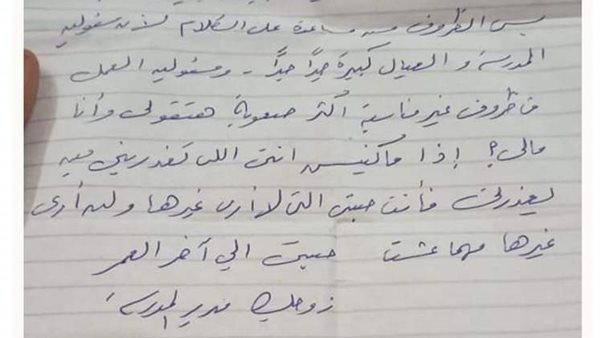 بس الظروف مش مساعدة على الكلام لأن مسئولية
المدرسة و العيال كبيرة جداً جداً - ومسئولية العمل
في ظروف غير مناسبة أكثر صعوبة هتقولى وأنا
مالى؟ إذا ماكنتيش انتى اللى تعذرينى مين
يعذرنى فأنت حبيبتى التى لا أرى غيرها ولن أرى
غيرها مهما عشت حبيبتى الي آخر العمر
زوجك مدير المدرسة